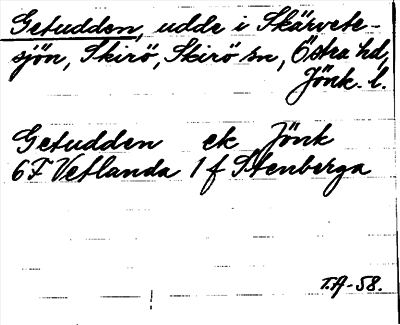 Getudden, udde i Skärvete-
sjön, Skirö, Skirö sn, Östra hd,
Jönk. l.
Getudden ek Jönk
6F Vetlanda 1 f Stenberga
T.A-58.